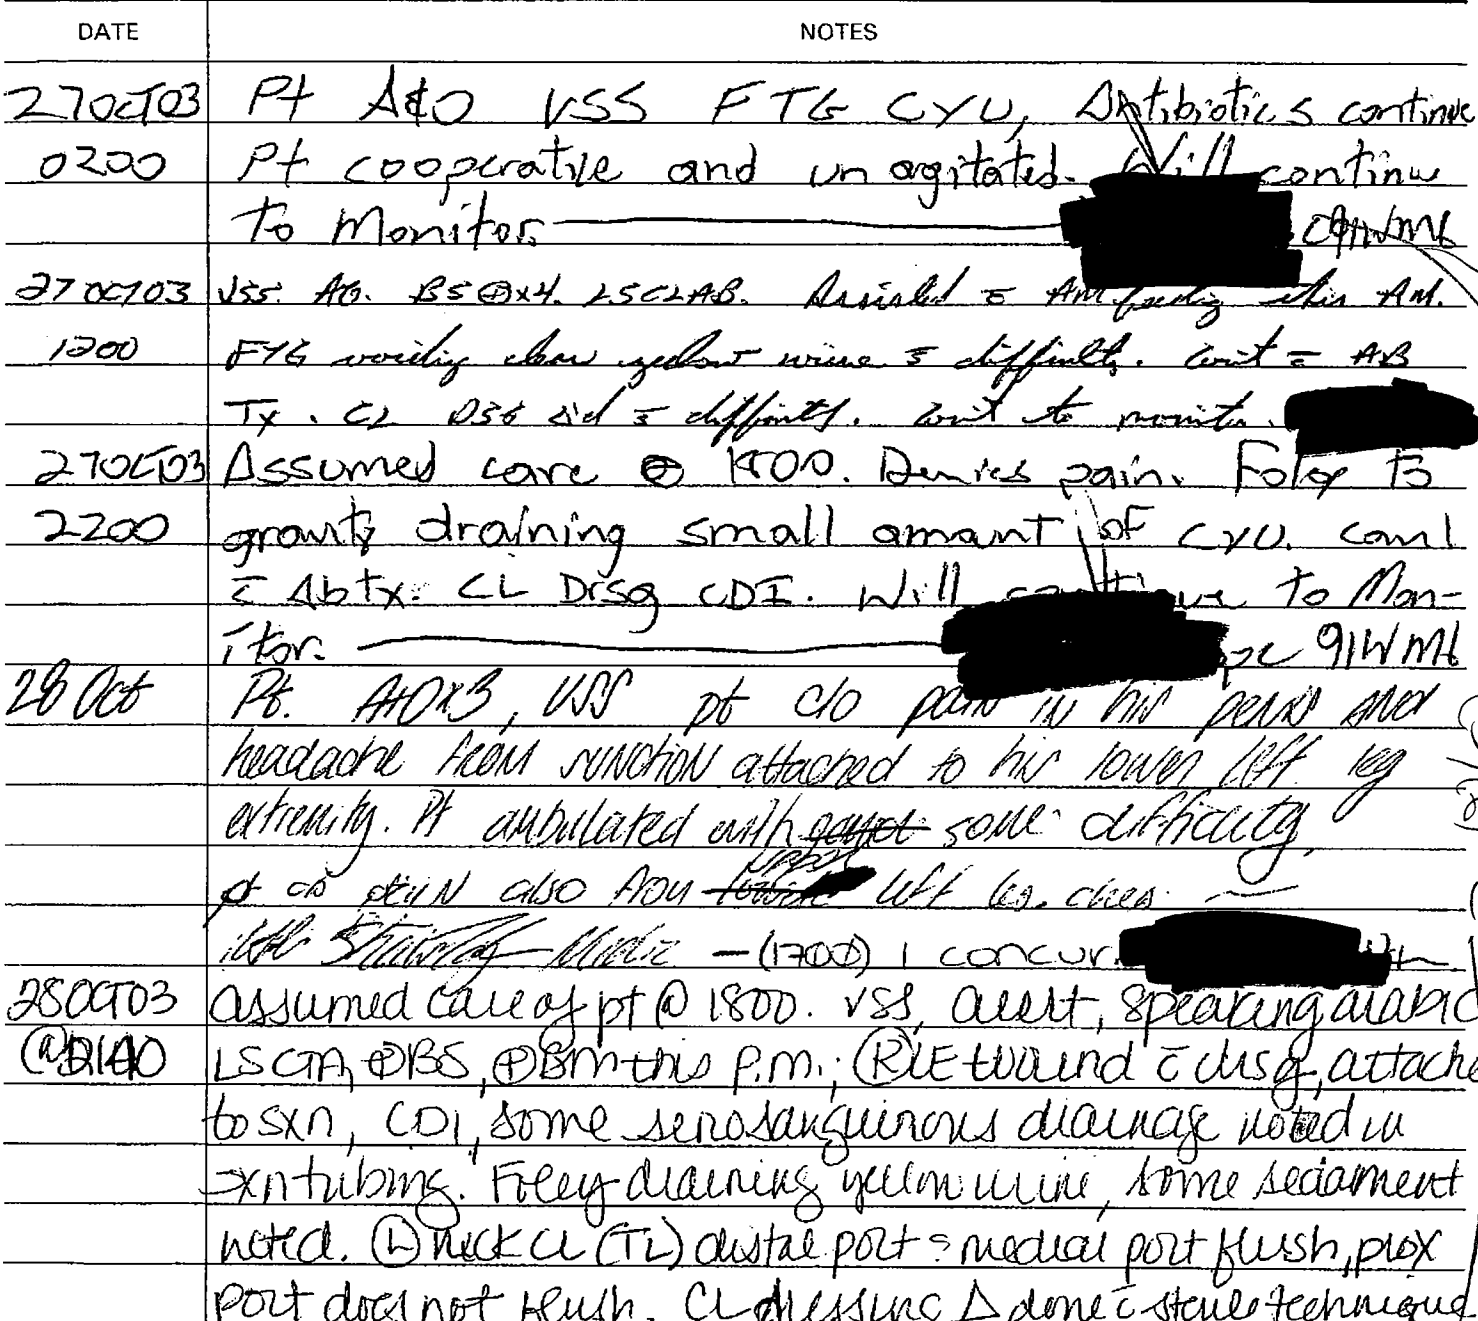 DATE NOTES
27OCT03 Pt A&O VSS FTG CYU, Antibiotics continue
0200 Pt cooperative and unagitated. Will continue
to Monitor.
27OCT03 VSS. AO. BS⊕x4. LSCLAB. Assisted c̄ AM feeding this AM.
1200 FTG voiding clear yellow urine s̄ difficulty. Cont c̄ AB
Tx. CL DSG s̄ difficulty. Cont to monitor.
27OCT03 Assumed care @ 1800. Denies pain. Foley to
2200 gravity draining small amount of CYU. Cont
c̄ Abtx. CL Drsg CDI. Will continue to Mon-
itor. 91WM6
28 Oct Pt. A+Ox3, VSS pt c/o pain in his penis and
headache from sunction attached to his lower left leg
extremity. Pt ambulated with some difficulty,
pt c/o pain also from upper left leg.
Medic - (1700) I concur.
28OCT03 assumed care of pt @ 1800. VSS, alert, speaking arabic
@2140 LSCTA, ⊕BS, ⊕BM this p.m.; Ⓡ LE wound c̄ drsg, attache
to sxn, CDI, some serosanguinous drainage noted in
sxn tubing. Foley draining yellow urine, some sediament
noted. Ⓛ neck CL (TL) distal port & medial port flush, prox
port does not flush. CL dressing Δ done c̄ sterile technique